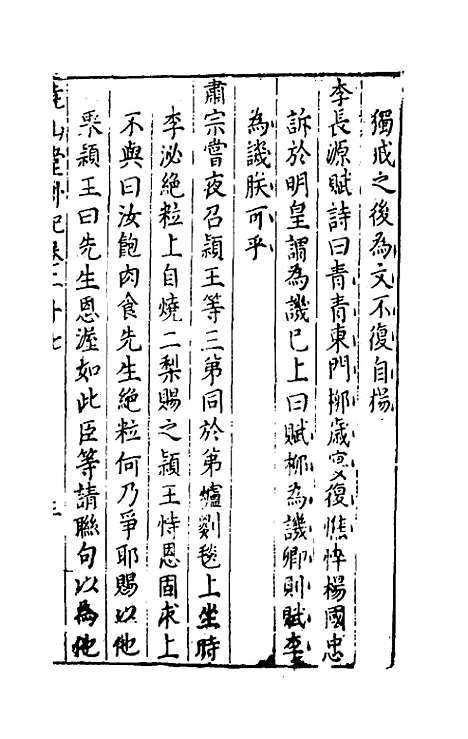 獨戒之後為文不復自揚
李長源賦詩曰青青東門柳歲宴復憔悴楊國忠
訴於明皇謂為譏已上曰賦柳為譏卿則賦李
為譏朕可乎
肅宗嘗夜召潁王等三弟同於第爐罽毯上坐時
李泌絶粒上自燒二梨賜之潁王恃恩固求上
不與曰汝飽肉食先生絶粒何乃爭耶賜以他
果潁王曰先生恩渥如此臣等請聯句以為他
堯山堂外紀卷二十七
三